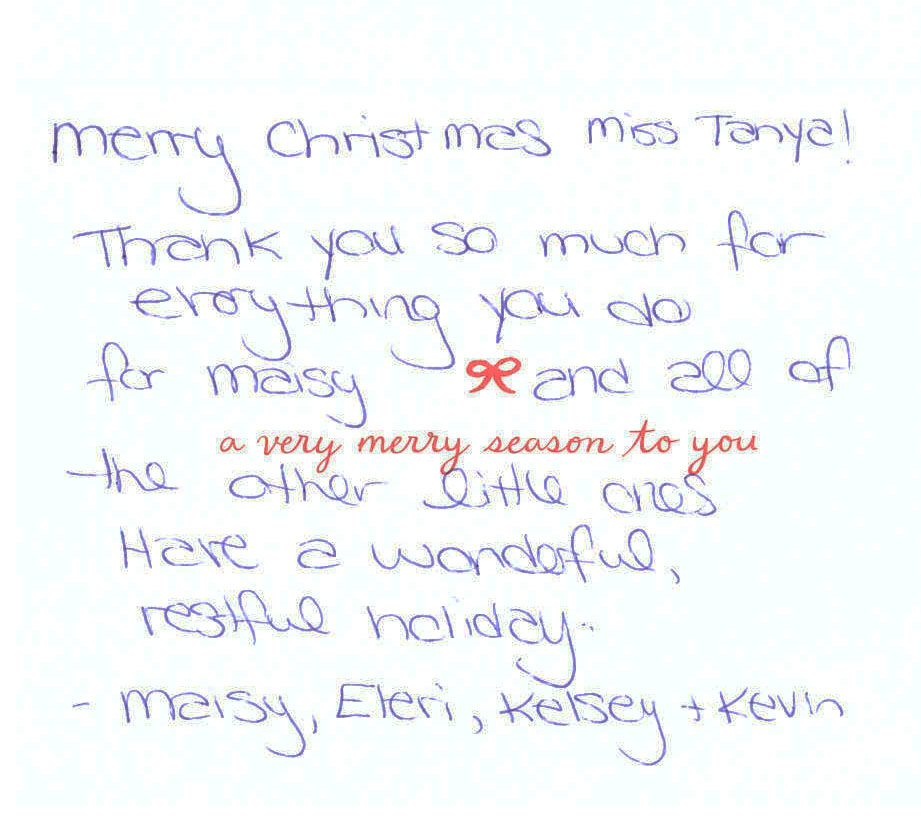 merry Christmas miss Tanya!
Thank you so much for
everything you do
for maisy and all of
a very merry season to you
the other little ones
Have a wonderful,
restful holiday.
- maisy, Eleri, Kelsey + Kevin